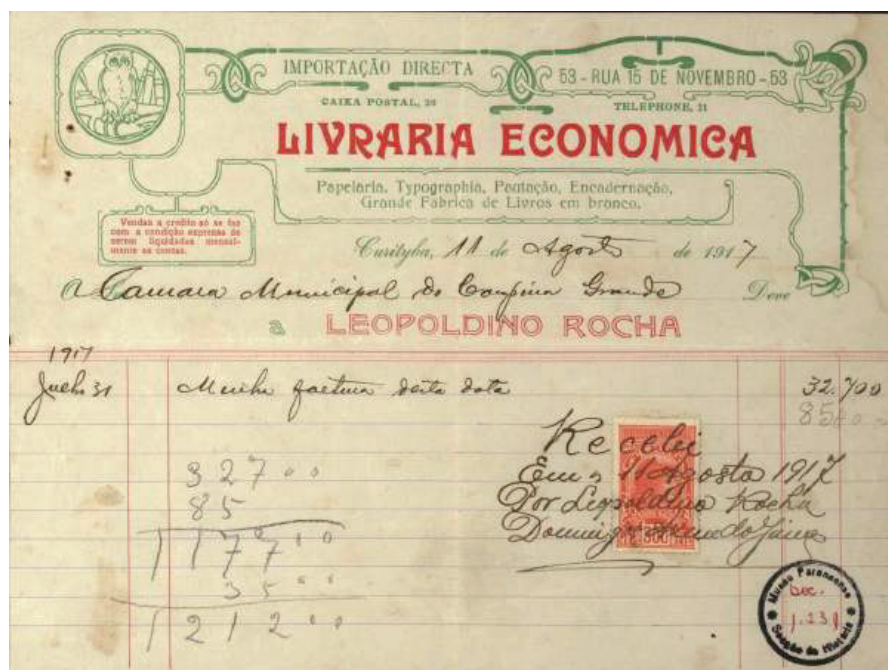 IMPORTAÇÃO DIRECTA
53 - RUA 15 DE NOVEMBRO - 53
CAIXA POSTAL, 26
TELEPHONE, 21
LIVRARIA ECONOMICA
Papelaria, Typographia, Pautação, Encadernação,
Grande Fabrica de Livros em branco.
Vendas a credito só se faz
com a condição expressa de
serem liquidadas mensal-
mente as contas.
Curityba, 11 de Agosto de 1917
A Camara Municipal de Campina Grande Deve
a LEOPOLDINO ROCHA
1917
Julho 31 Minha factura desta data 32.700
85
Recebi
Em 11 Agosto 1917
Por Leopoldino Rocha
300
32700
85
117700
3500
121200
Museu Paranaense
Doc.
1.231
Secção de Historia